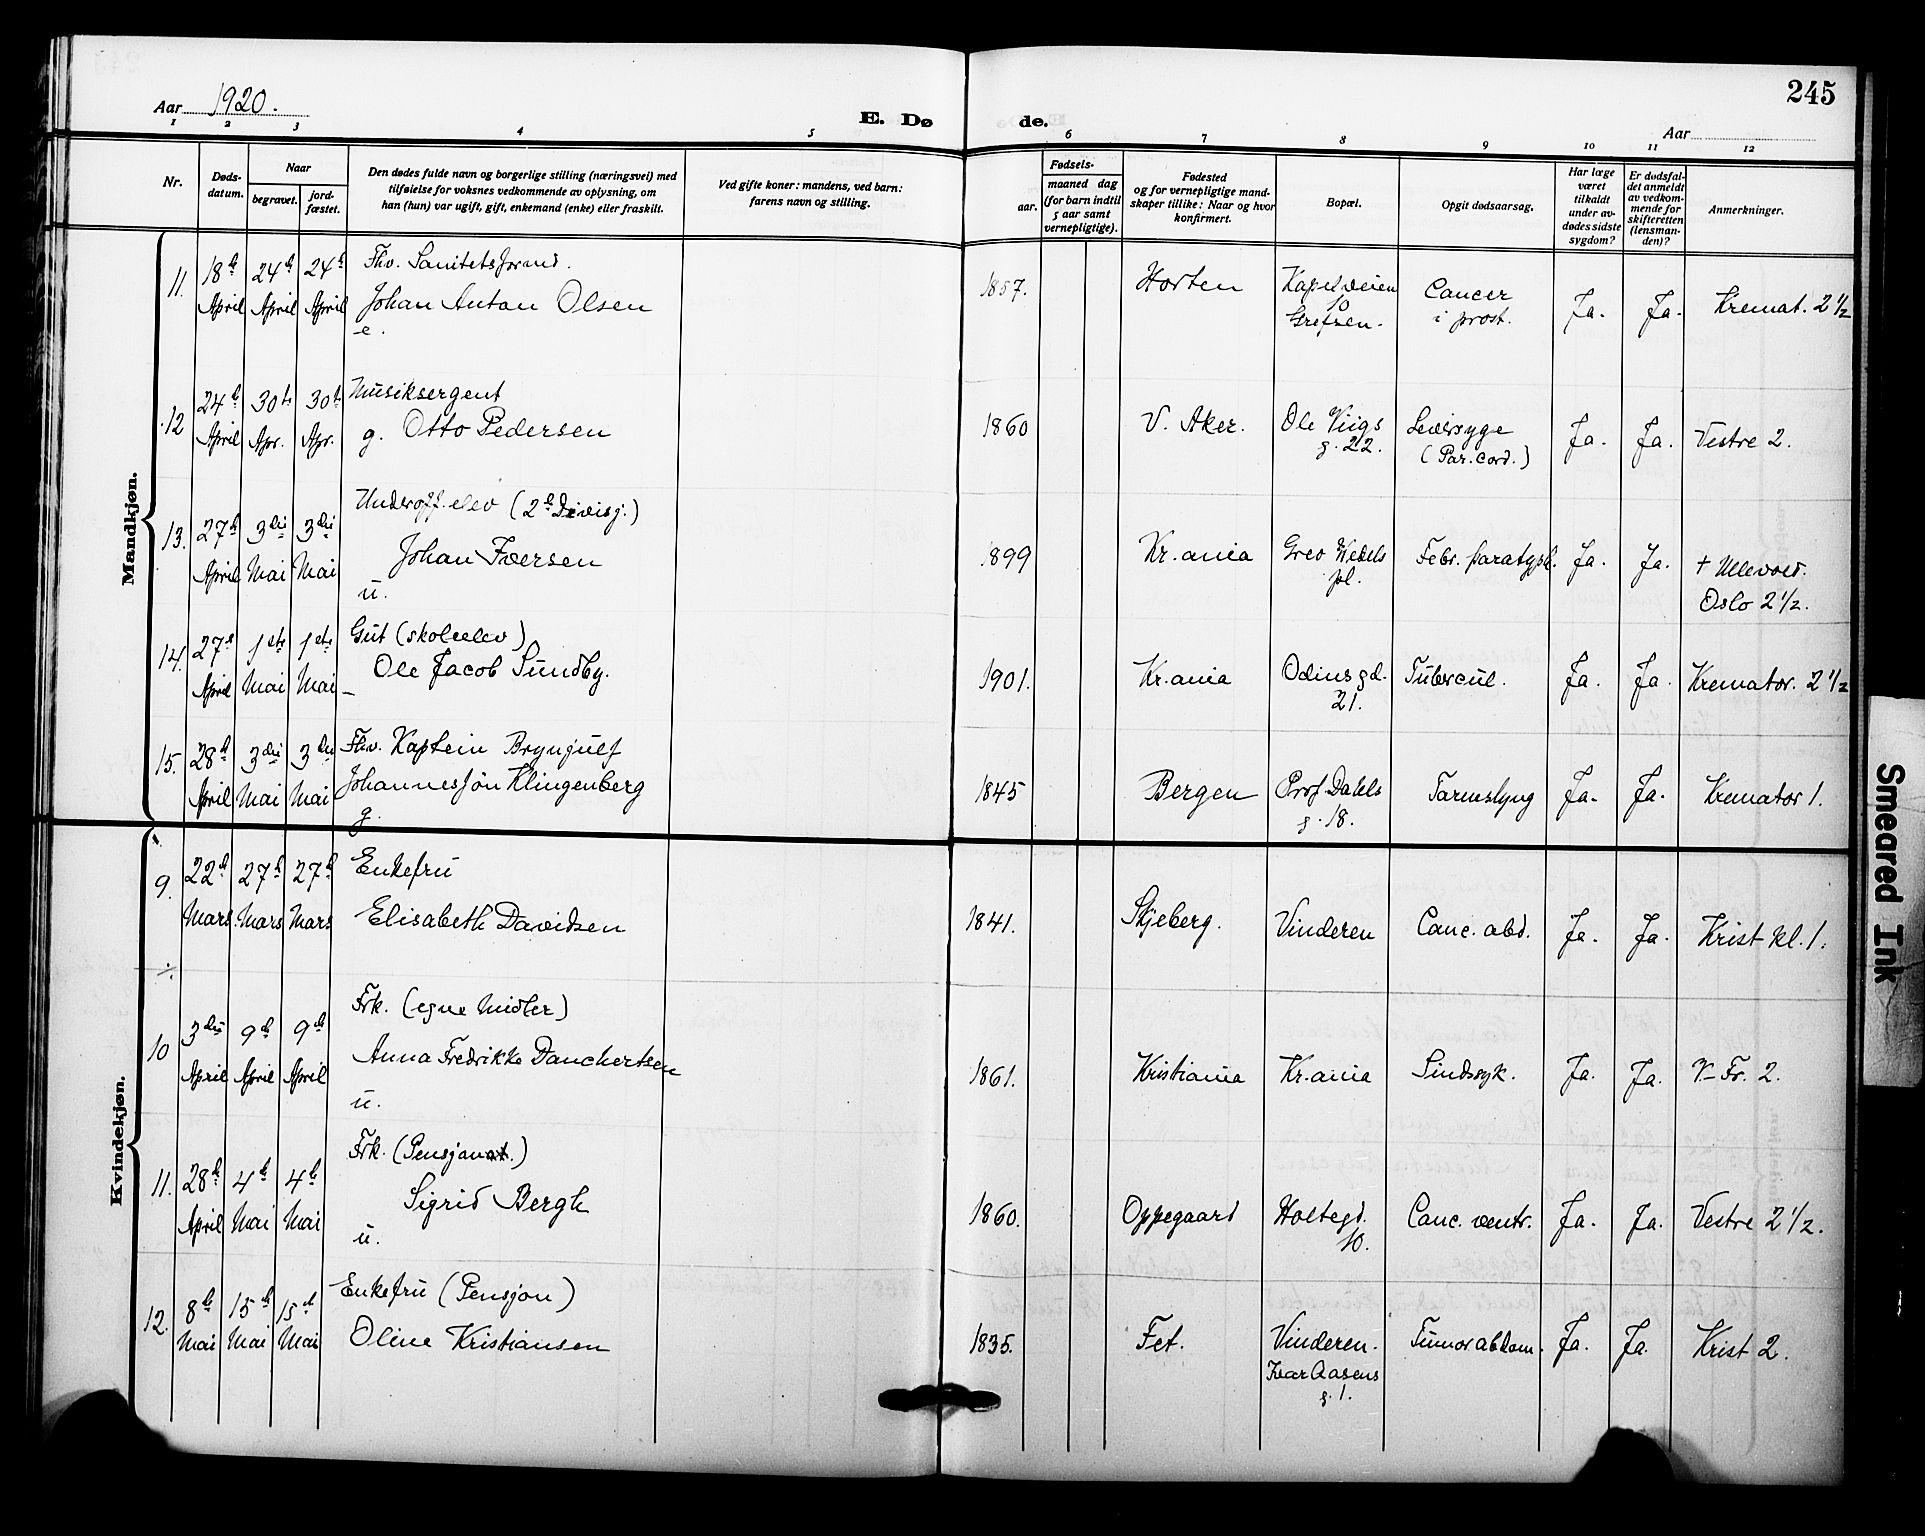 245
Aar 1920.
E. Dø de.
Aar
1 2 3 4 5 6 7 8 9 10 11 12
Nr.
Døds-
datum.
Naar
begravet.
jord-
fæstet.
Den dødes fulde navn og borgerlige stilling (næringsvei) med
tilføielse for voksnes vedkommende av oplysning, om
han (hun) var ugift, gift, enkemand (enke) eller fraskilt.
Ved gifte koner: mandens, ved barn:
farens navn og stilling.
Fødsels-
aar.
maaned dag
(for barn indtil
5 aar samt
vernepligtige).
Fødested
og for vernepligtige mand-
skaper tillike: Naar og hvor
konfirmert.
Bopæl.
Opgit dødsaarsag.
Har læge
været
tilkaldt
under av-
dødes sidste
sygdom?
Er dødsfal-
det anmeldt
av vedkom-
mende for
skifteretten
(lensman-
den)?
Anmerkninger.
Mandkjøn.
11. 18de April 24de April 24de April
Fhv. Sanitetsforvd.
Johan Anton Olsen
e.
1857. Horten
Kapelveien
10
Grefsen.
Cancer
i prost.
Ja. Ja. Kremat. 2 1/2
12 24de April 30te Apr. 30te Apr.
Musiksergent
g. Otto Pedersen
1860 V. Aker.
Ole Viigs
g. 22.
Leversyge
(Par. cord.)
Ja. Ja. Vestre 2.
13. 27de April 3die Mai 3die Mai
Underoff. elev (2de Divisj.)
Johan Iversen
u.
1899 Kr.ania
Grev Wedels
pl.
Febr. paratyph. Ja. Ja.
+ Ullevold.
Oslo 2 1/2.
14. 27de April 1ste Mai 1ste Mai
Gut (skoleelev)
Ole Jacob Sundby.
—
1901. Kr.ania
Odinsgd.
21.
Tubercul. Ja. Ja. Kremator. 2 1/2
15. 28de April 3die Mai 3die Mai
Fhv. Kaptein Brynjulf
Johannessøn Klingenberg
g.
1845 Bergen
Prof Dahls
g. 18.
Tarmslyng Ja. Ja. Kremator 1.
Kvindekjøn.
9. 22de Mars 27de Mars 27de Mars
Enkefru
Elisabeth Davidsen
1841. Skjeberg. Vinderen Canc. abd. Ja. Ja. Krist kl. 1.
÷
10 3die April 9de April 9de April
Frk. (egne Midler)
Anna Fredrikke Danchertsen
u.
1861. Kristiania Kr.ania Sindssyk. Ja. Ja. V- Fr. 2.
11. 28de April 4de Mai 4de Mai
Frk. (Pensjonat.)
Sigrid Bergh
u.
1860. Oppegaard
Holtegd.
10.
Canc. ventr. Ja. Ja. Vestre 2 1/2.
12. 8de Mai 15de Mai 15de Mai
Enkefru (Pensjon)
Oline Kristiansen
1835. Fet.
Vinderen.
Ivar Aasens
g. 1.
Tumor abdom. Ja. Ja. Krist 2.
Smeared Ink